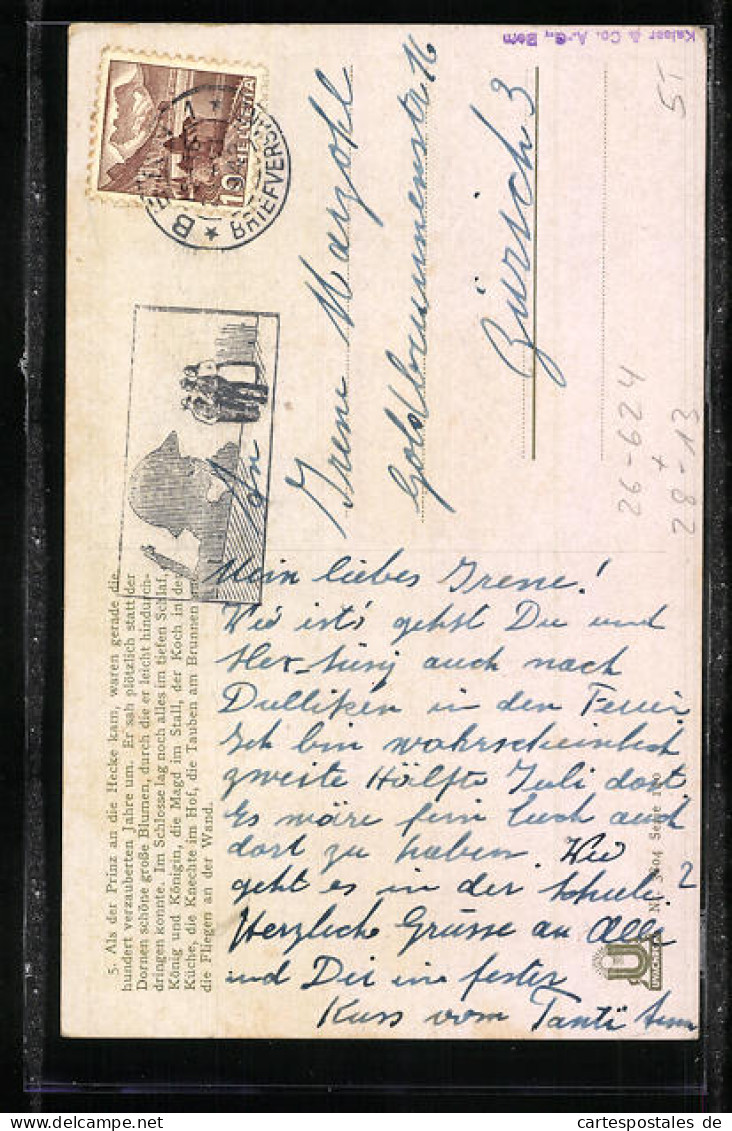 5. Als der Prinz an die Hecke kam, waren gerade die
hundert verzauberten Jahre um. Er sah plötzlich statt der
Dornen schöne große Blumen, durch die er leicht hindurch-
dringen konnte. Im Schlosse lag noch alles im tiefen Schlaf,
König und Königin, die Magd im Stall, der Koch in der
Küche, die Knechte im Hof, die Tauben am Brunnen und
die Fliegen an der Wand.
Mein liebes Irene!
Wie ist's gehst Du und
auch nach
Dulliken in den Ferien
Ich bin wahrscheinlich
zweite Hälfte Juli dort.
Es wäre fein Euch auch
dort zu haben. Wie
geht es in der Schule?
Herzliche Grüsse an Alle
und Dir ein fester
Kuss vom Tanti
An
Irene Marzohl
Goldbrunnenstr. 16
Zürich 3
HELVETIA
10
BRIEFVERSAND
Kaiser & Co. A.-G., Bern
5.-
26-624
+
28-13
U
Serie 190
cartespostales de